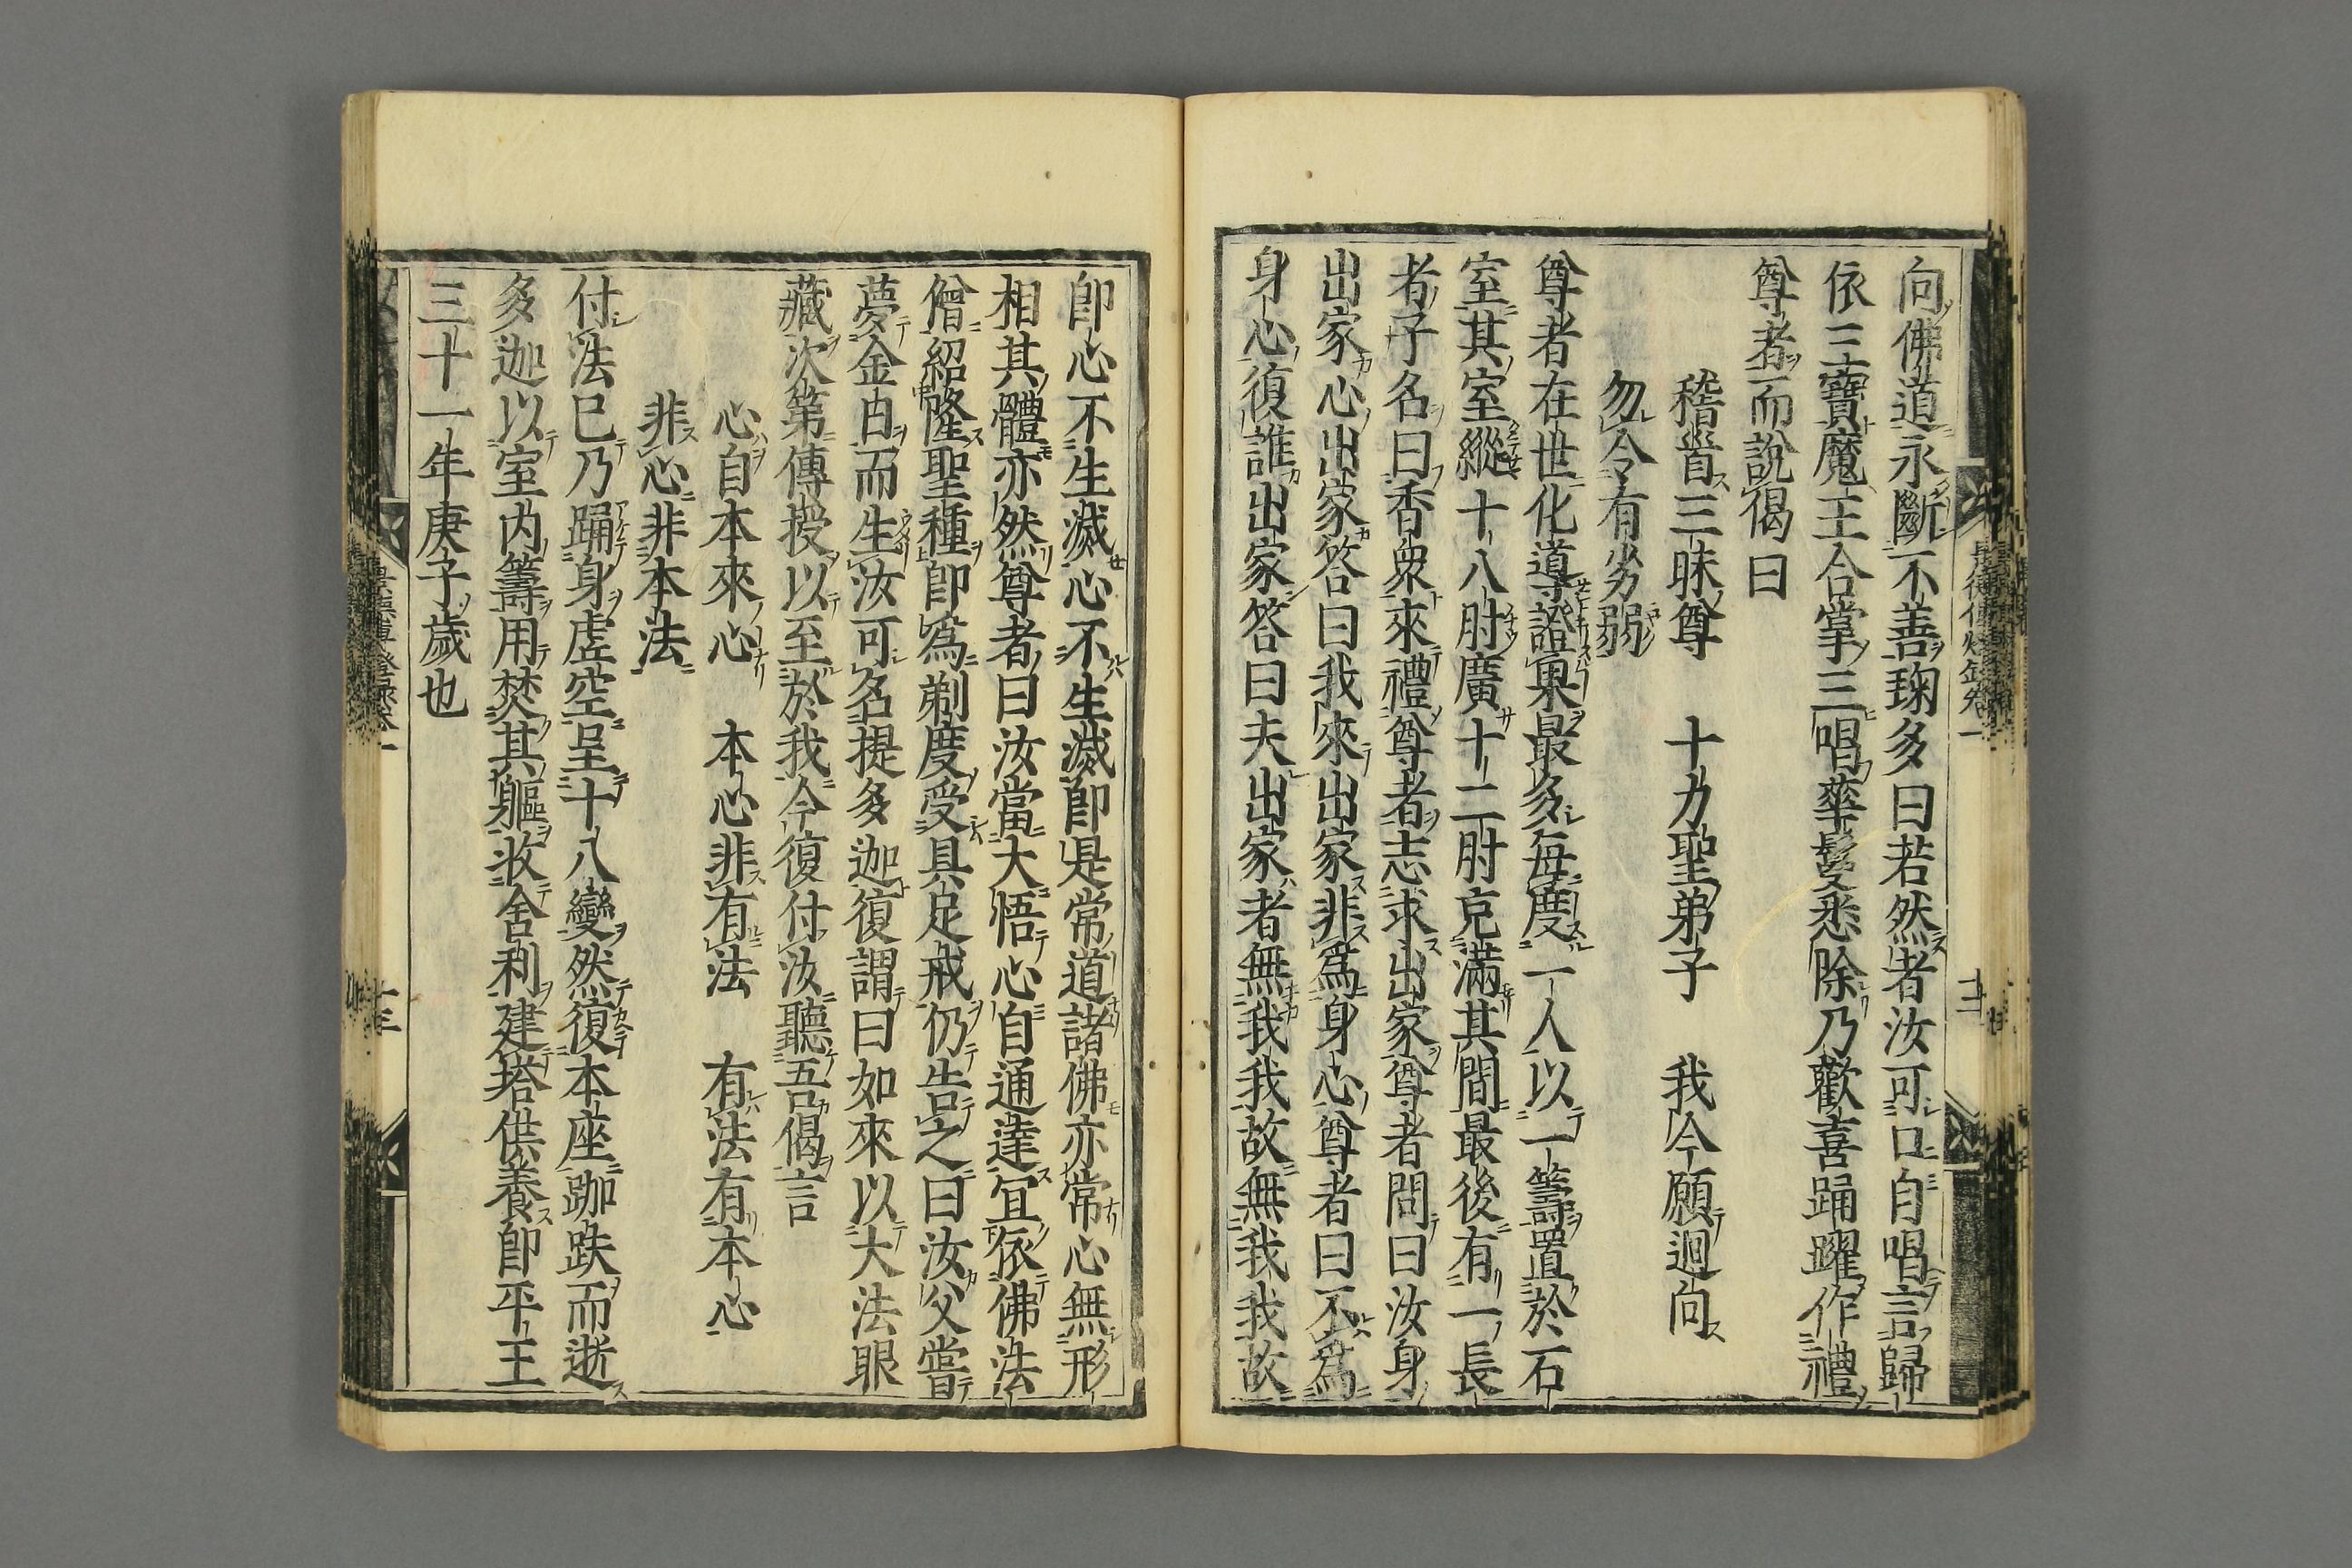 向佛道永斷不善鞠多曰若然者汝可口自唱言歸
依三寶魔王合掌三唱華鬘悉除乃歡喜踊躍作禮
尊者而說偈曰
稽首三昧尊　十力聖弟子　我今願迴向
勿令有劣弱
尊者在世化導證果最多每度一人以一籌置於石
室其室縱十八肘廣十二肘充滿其間最後有一長
者子名曰香衆來禮尊者志求出家尊者問曰汝身
出家心出家答曰我來出家非爲身心尊者曰不爲
身心復誰出家答曰夫出家者無我我故無我我故
卽心不生滅心不生滅卽是常道諸佛亦常心無形
相其體亦然尊者曰汝當大悟心自通達宜依佛法
僧紹隆聖種卽爲剃度受具足戒仍告之曰汝父嘗
夢金日而生汝可名提多迦復謂曰如來以大法眼
藏次第傳授以至於我今復付汝聽吾偈言
心自本來心　本心非有法　有法有本心
非心非本法
付法已乃踊身虛空呈十八變然復本座跏趺而逝
多迦以室內籌用焚其軀收舍利建塔供養卽平王
三十一年庚子歲也